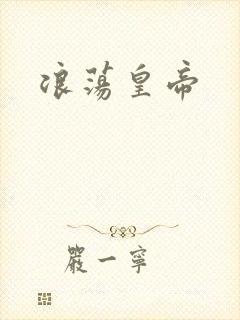 浪蕩皇帝
嚴一寧